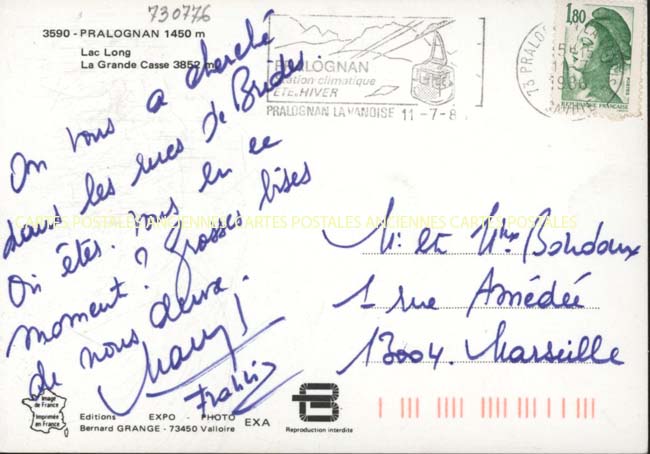 730776
3590 - PRALOGNAN 1450 m
Lac Long
La Grande Casse 3852 m
PRALOGNAN
station climatique
ÉTÉ. HIVER
PRALOGNAN LA VANOISE 11-7-8
73 PRALOG
1,80
REPUBLIQUE FRANÇAISE
POSTES
On vous a cherché
dans les rues de Brides.
Où êtes. vous en ce
moment? Grosses bises
de nous deux.
Francis
CARTES POSTALES ANCIENNES CARTES POSTALES ANCIENNES CARTES POSTALES
Mr et Mme Bordoux
1 rue Amédée
13004. Marseille
Image
de France
Imprimée
en France
Editions EXPO - PHOTO EXA
Bernard GRANGE - 73450 Valloire
Reproduction interdite